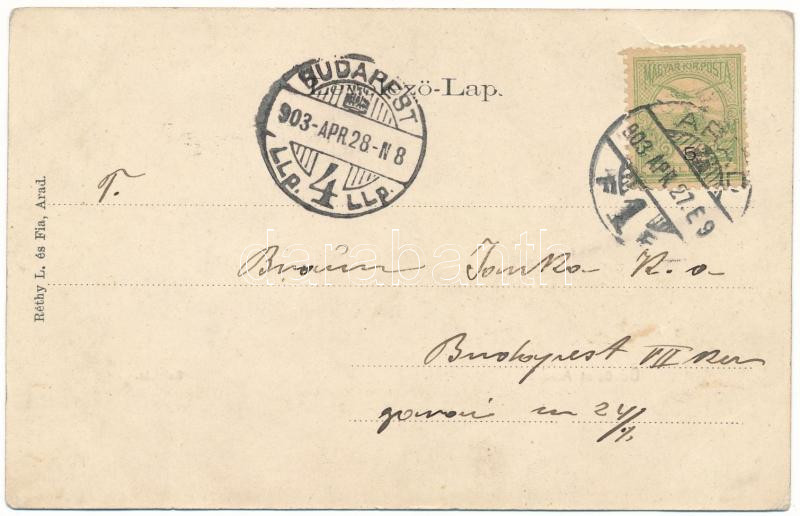 Levelező-Lap.
BUDAPEST
903-APR.28-N 8
4
LLp. LLp.
MAGYAR·KIR·POSTA
ARAD
903 APR. 27. E 9
F 1 F
T.
Braun Janka K. a
Budapest VII ker
24/
Réthy L. és Fia, Arad.
darabanth